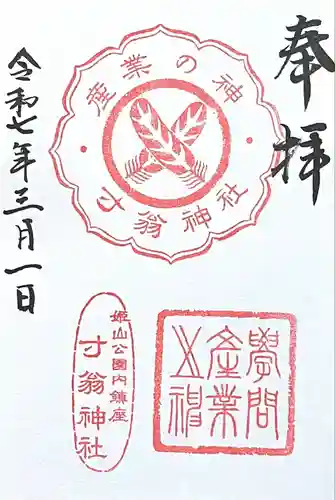 奉拝
産業の神
寸翁神社
學問
産業
之神
姫山公園内鎮座
寸翁神社
令和七年三月一日